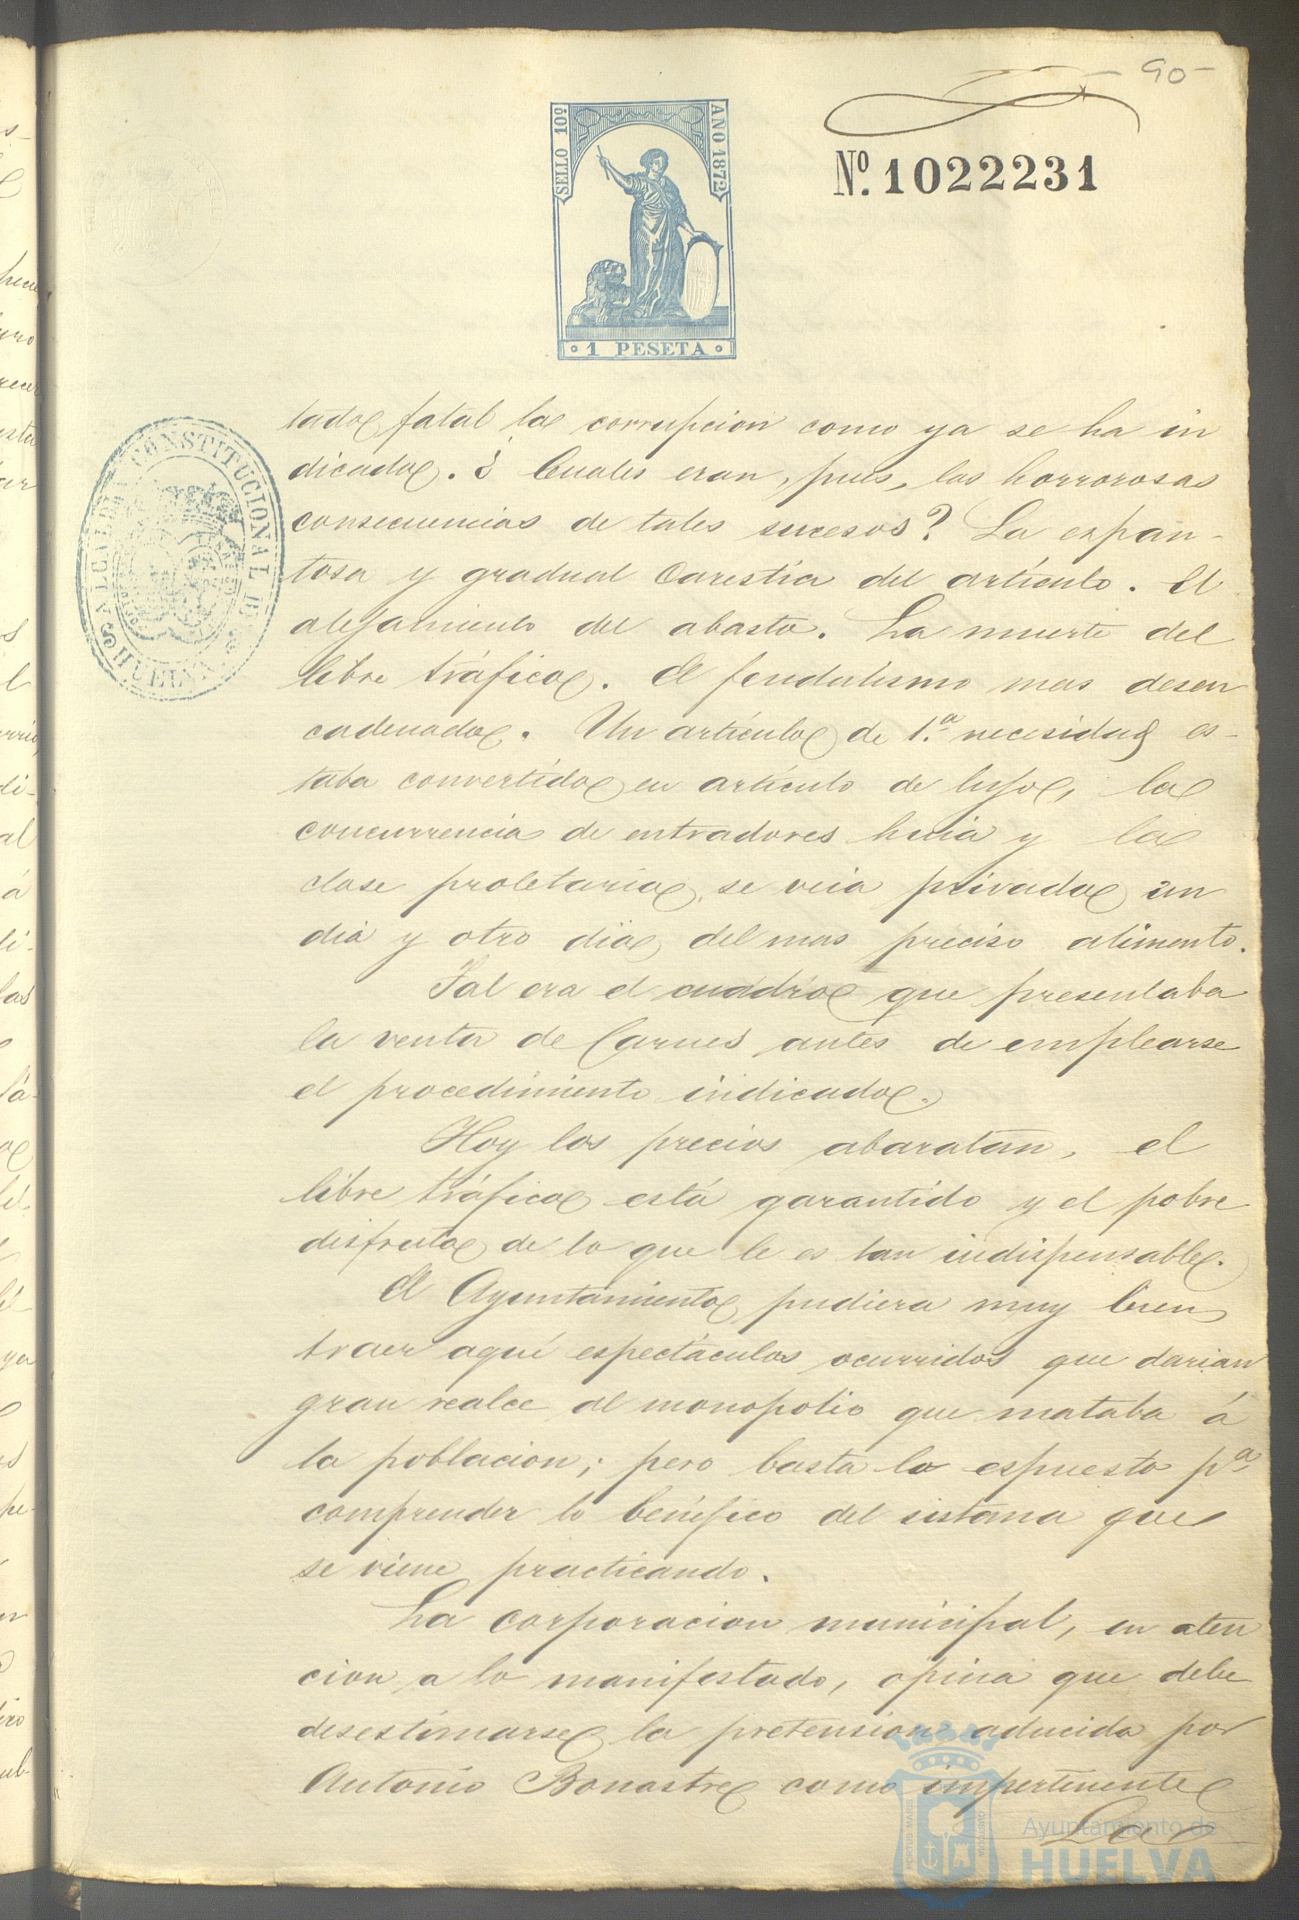 90
SELLO 10º
AÑO 1872
Nº. 1022231
1 PESETA
ALCALDIA CONSTITUCIONAL DE
HUELVA
tado fatal la corrupcion como ya se ha in
dicado. ¿ Cuales eran, pues, las horrorosas
consecuencias de tales sucesos? La espan-
tosa y gradual Carestia del artículo. El
alejamiento del abasto. La muerte del
libre tráfico. El feudalismo mas desen
cadenado. Un artículo de 1.ª necesidad es-
taba convertido en artículo de lujo, la
concurrencia de entradores huia y la
clase proletaria, se veia privada un
dia y otro dia, del mas preciso alimento.
Tal era el cuadro que presentaba
la venta de Carnes antes de emplearse
el procedimiento indicado.
Hoy los precios abaratan, el
libre tráfico está garantido y el pobre
disfruta de lo que le es tan indispensable.
El Ayuntamiento pudiera muy bien
traer aquí espectáculos ocurridos que darian
gran realce al monopolio que mataba á
la poblacion; pero basta lo espuesto pª
comprender lo benéfico del sistema que
se viene practicando.
La corporacion municipal, en aten
cion a lo manifestado, opina que debe
desestimarse la pretension aducida por
Antonio Bonastre como impertinente
La
Ayuntamiento de
HUELVA